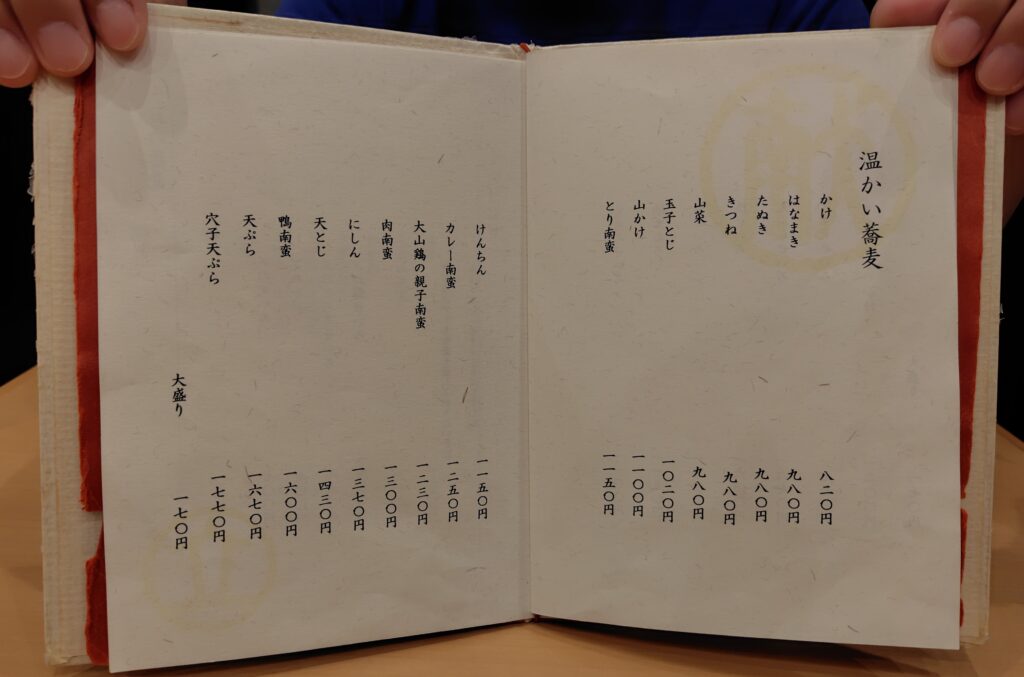 温かい蕎麦
かけ 八二〇円
はなまき 九八〇円
たぬき 九八〇円
きつね 九八〇円
山菜 九八〇円
玉子とじ 一〇二〇円
山かけ 一一〇〇円
とり南蛮 一一五〇円
けんちん 一一五〇円
カレー南蛮 一二五〇円
大山鶏の親子南蛮 一二三〇円
肉南蛮 一三〇〇円
にしん 一三七〇円
天とじ 一四三〇円
鴨南蛮 一六〇〇円
天ぷら 一六七〇円
穴子天ぷら 一七七〇円
大盛り 一七〇円